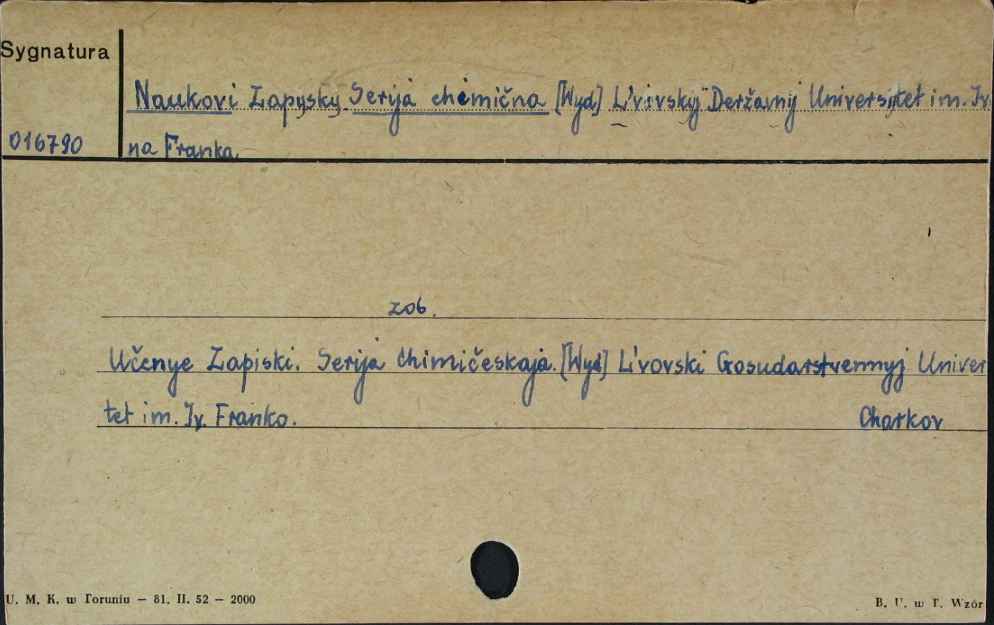 Sygnatura
Naukovi Zapysky. Serija chemična [Wyd.] L'vivskyj Deržavnyj Universytet im. Iv.
016790
na Franka.
zob.
Učenye Zapiski. Serija Chimičeskaja. [Wyd] L'vovski Gosudarstvennyj Univer
tet im. Iv. Franko. Charkov
U. M. K. w Toruniu — 81. II. 52 — 2000 B. U. w T. Wzór